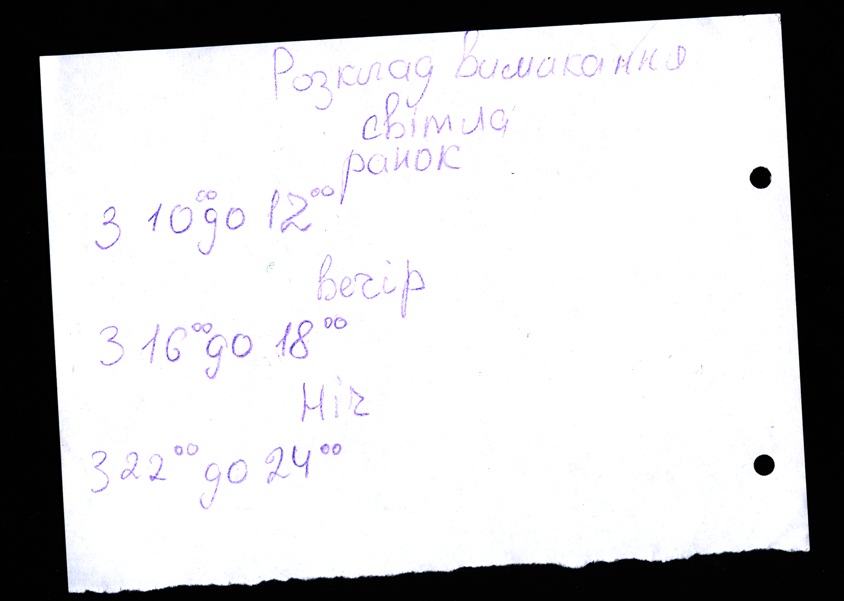 Розклад вимикання
світла
ранок
З 10⁰⁰ до 12⁰⁰
вечір
З 16⁰⁰ до 18⁰⁰
Ніч
З 22⁰⁰ до 24⁰⁰